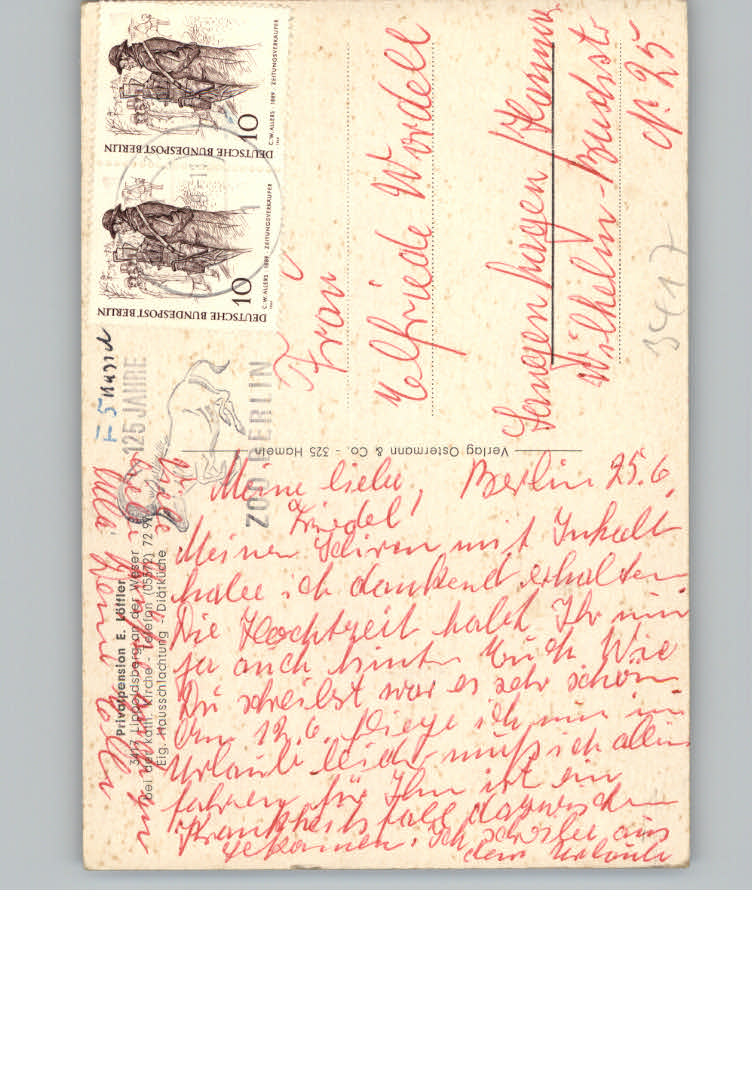 DEUTSCHE BUNDESPOST BERLIN
10
C. W. ALLERS · 1889 · ZEITUNGSVERKÄUFER
DEUTSCHE BUNDESPOST BERLIN
10
C. W. ALLERS · 1889 · ZEITUNGSVERKÄUFER
125 JAHRE
ZOO BERLIN
F 5
Frau
Elfriede Wordell
Langenhagen / Hannov
Wilhelm-Buschstr
Nr. 25
3417
Verlag Ostermann & Co. - 325 Hameln
Privatpension E. Löffler
3417 Lippoldsberg an der Weser
bei der kath. Kirche - Telefon (05572) 72 9
Eig. Hausschlachtung - Diätküche
Berlin 25.6.
Meine liebe
Friedel!
Meinen mit Inhalt
habe ich dankend erhalten
Die Hochtzeit habt Ihr nun
ja auch hinter Euch Wie
Du schreibst war es sehr schön
Am 12.6. fliege ich nun in
Urlaub leider muß ich allein
fahren für Ihn ist ein
Krankheitsfall dazwischen
gekommen. Ich schreibe aus
dem Urlaub
Viele
liebe